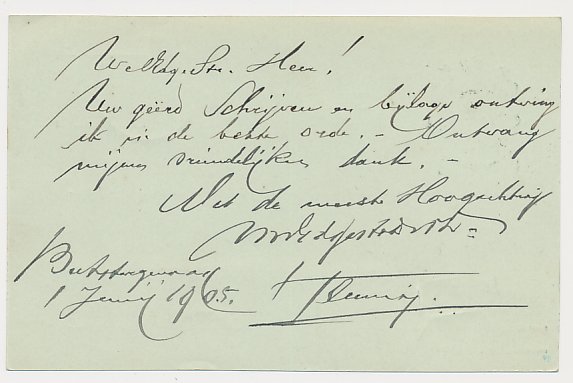 WelEdg. Str. Heer!
Uw geëerd Schrijven en bijlage ontving
ik in de beste orde. – Ontvang
mijnen vriendelijken dank. –
Met de meeste Hoogachting

1 Junij 1905.